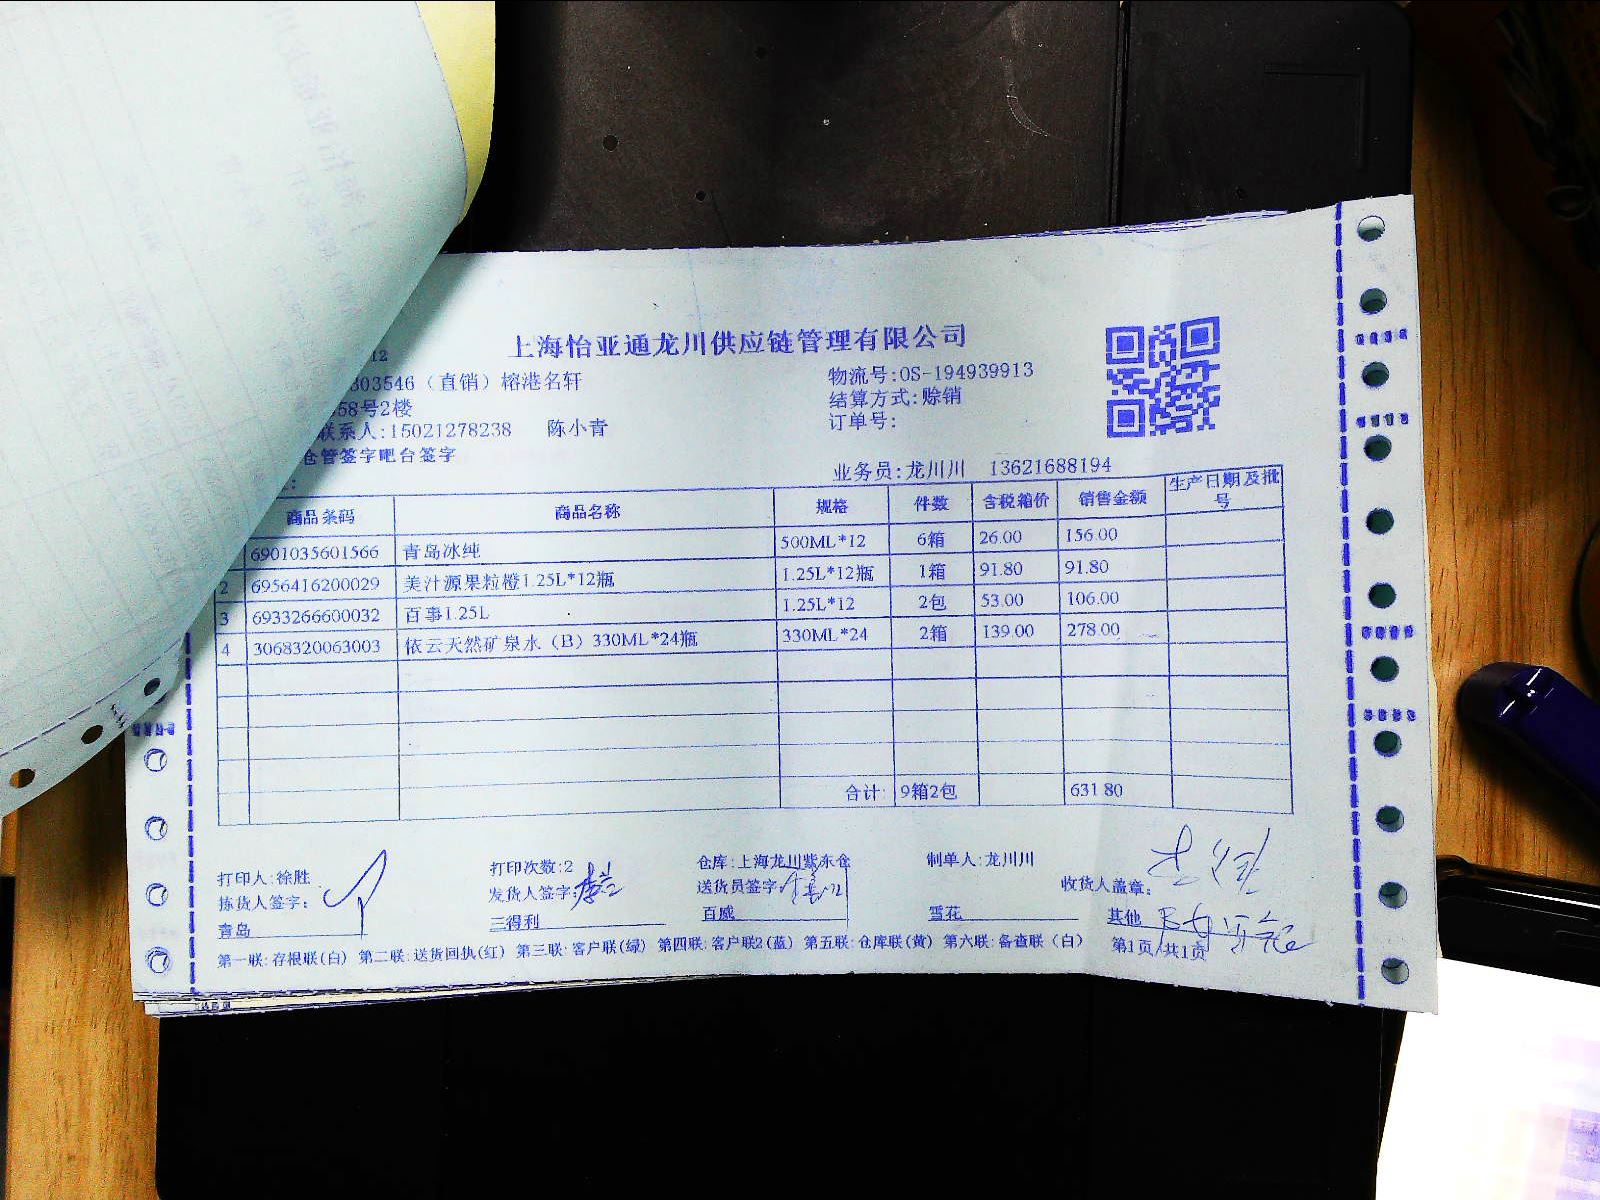 上海怡亚通龙川供应链管理有限公司
12
303546（直销）榕港名轩
物流号:OS-194939913
58号2楼
结算方式:赊销
联系人:15021278238 陈小青
订单号:
仓管签字吧台签字
业务员:龙川川 13621688194
商品条码 商品名称 规格 件数 含税箱价 销售金额 生产日期及批号
6901035601566 青岛冰纯 500ML*12 6箱 26.00 156.00
2 6956416200029 美汁源果粒橙1.25L*12瓶 1.25L*12瓶 1箱 91.80 91.80
3 6933266600032 百事1.25L 1.25L*12 2包 53.00 106.00
4 3068320063003 依云天然矿泉水（B）330ML*24瓶 330ML*24 2箱 139.00 278.00
合计: 9箱2包 631.80
打印人:徐胜 打印次数:2 仓库:上海龙川紫东仓 制单人:龙川川
拣货人签字: 发货人签字: 送货员签字: 收货人盖章:
青岛 三得利 百威 雪花 其他
第一联:存根联(白) 第二联:送货回执(红) 第三联:客户联(绿) 第四联:客户联2(蓝) 第五联:仓库联(黄) 第六联:备查联（白） 第1页/共1页